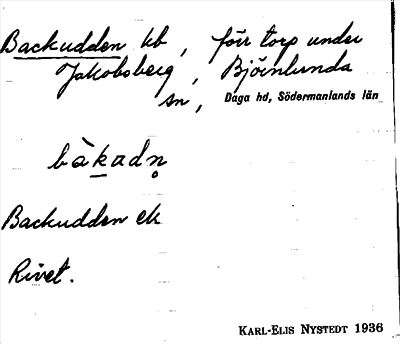 Backudden lb, förr torp under
Jakobsberg, Björnlunda
sn, Daga hd, Södermanlands län
bàkadn̥
Backudden ek
Rivet.
KARL-ELIS NYSTEDT 1936